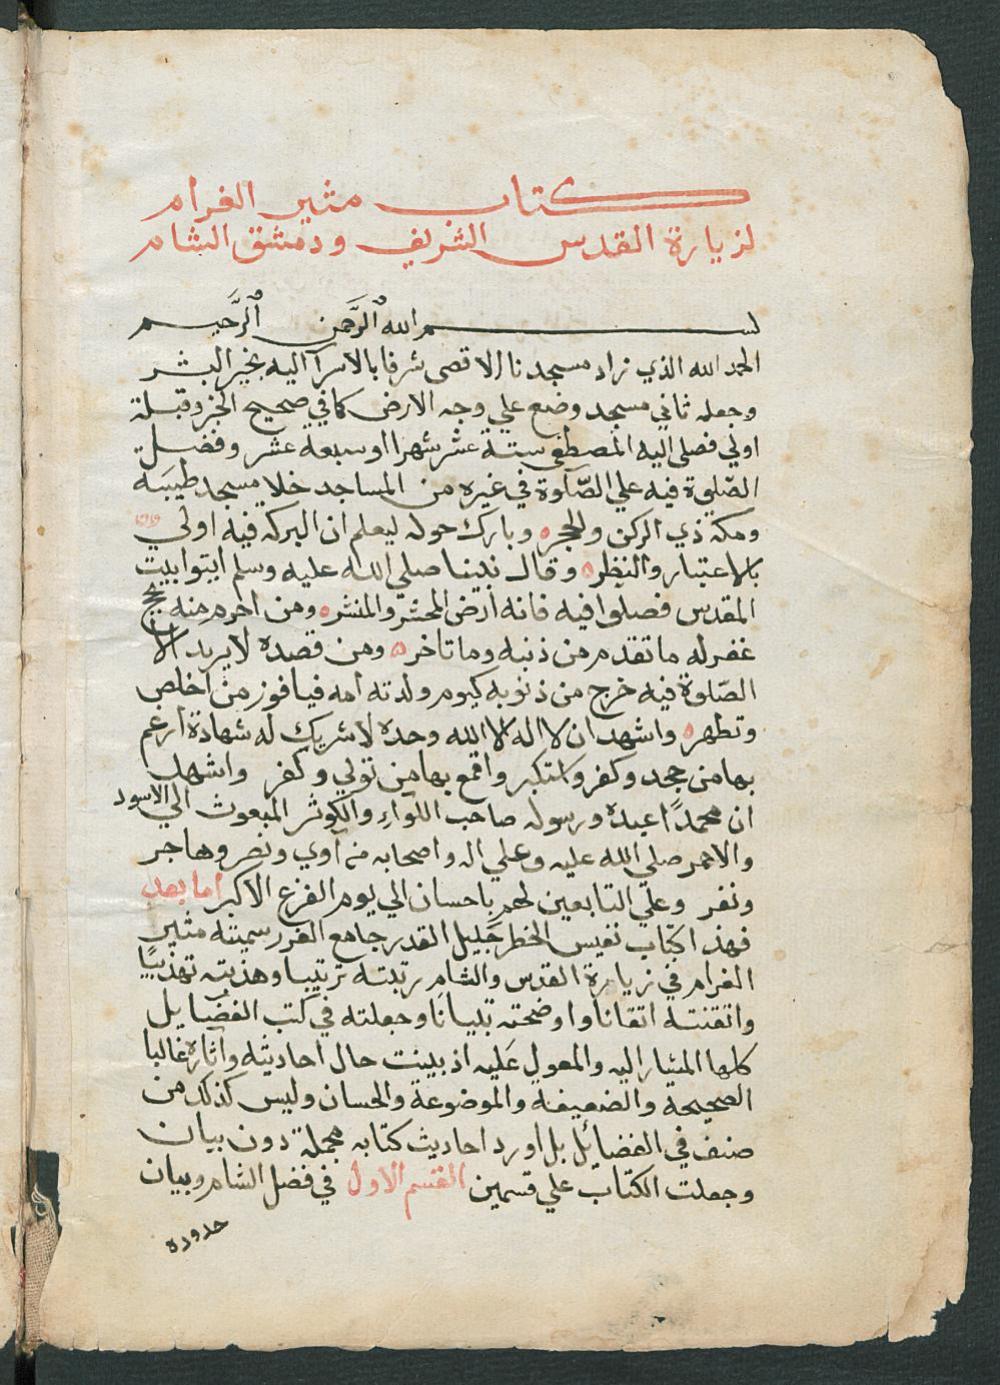 كتاب مثير الغرام
لزيارة القدس الشريف ودمشق الشام
بسم الله الرَّحمن الرَّحيم
الحمد لله الذي زاد مسجدنا الاقصى شرفا بالاسرا اليه بخير البشر
وجعله ثاني مسجد وضع علي وجه الارض كما في صحيح الخبر وقبلة
اولي فصلى اليه المصطفى ستة عشر شهرا او سبعة عشر وفضل
الصّلوة فيه علي الصّلوة في غيره من المساجد خلا مسجد طيبَة
ومكة ذي الركن والحجر ه وبارك حوله ليعلم ان البركة فيه اولي
بالاعتبار والنظر ه وقال نبينا صلي الله عليه وسلم ايتوا بيت
المقدس فصلوا فيه فانه ارض المحشر والمنشر ه ومن احرم منه بحج
غفر له ما تقدم من ذنبه وما تاخر ه ومن قصده لا يريد الا
الصّلوة فيه خرج من ذنوبه كيوم ولدته امه فيا فوز من اخلص
وتطهر ه واشهد ان لا اله الا الله وحده لا شريك له شهادة ارغم
بها من جحد وكفر واستكبر واقمع بها من تولي وكفر واشهد
ان محمدًا عبده ورسوله صاحب اللوآءِ والكوثر المبعوث الي الاسود
والاحمر صلي الله عليه وعلي اله واصحابه من آوي ونصر وهاجر
ونفر وعلي التابعين لهم باحسان الي يوم الفزع الاكبر اما بعد
فهذا كتاب نفيس الخطر جَليل القدر جامع الغرر سميته مثير
الغرام في زيارة القدس والشام رتبته ترتيبا وهذبته تهذيبًا
واتقنته اتقانا واوضحته تبيانًا وجعلته في كتب الفضايل
كلها المشار اليه والمعول عَليه اذ بينت حال احاديثه وآثاره غالبا
الصحيحة والضعيفة والموضوعة والحسان وليس كذلك من
صنف في الفضائل بل اورد احاديث كتابه مجملة دون بيان
وجعلت الكتاب علي قسمين القسم الاول في فضل الشام وبيان
حدوده